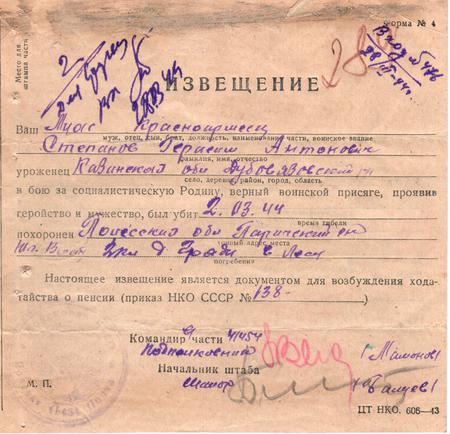 Форма № 4
Место для
штампа части
284
Вход № 476
28/III-44г.
2
28.03.44
ИЗВЕЩЕНИЕ
Ваш Муж Красноармеец
муж, отец, сын, брат, должность, наименование части, воинское звание
Степанов Герасим Антонович
фамилия, имя, отчество
уроженец Казанской обл Дубовязовский рн
село, деревня, район, город, область
в бою за социалистическую Родину, верный воинской присяге, проявив
геройство и мужество, был убит 2.03.44
время гибели
похоронен Полесская обл Паричский рн
точный адрес места
3км д в лесу
погребения
Настоящее извещение является документом для возбуждения хода-
тайства о пенсии (приказ НКО СССР № 138-
Командир части 41454
Подполковник (Мамонов)
Начальник штаба
Майор
М. П.
ЦТ НКО. 606—43